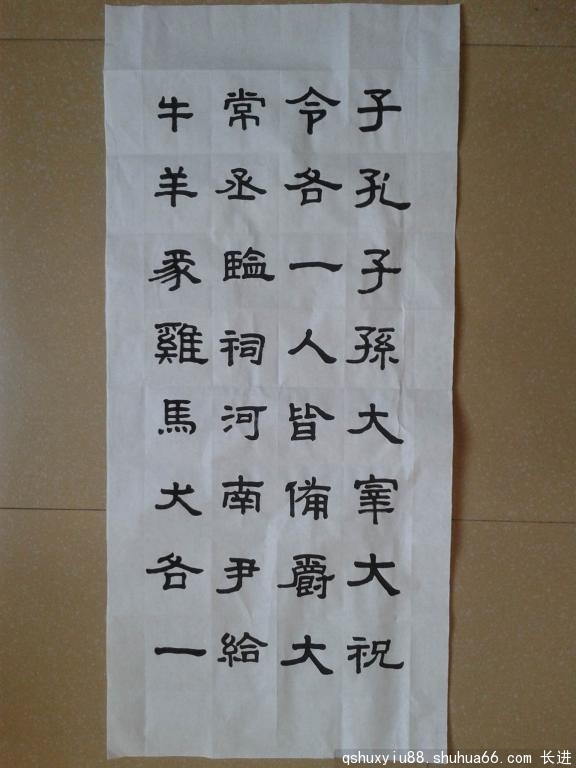 子孔子孫大宰大祝
令各一人皆備爵大
常丞臨祠河南尹給
牛羊豕雞馬犬各一
qshuxyiu88.shuhua66.com 长进